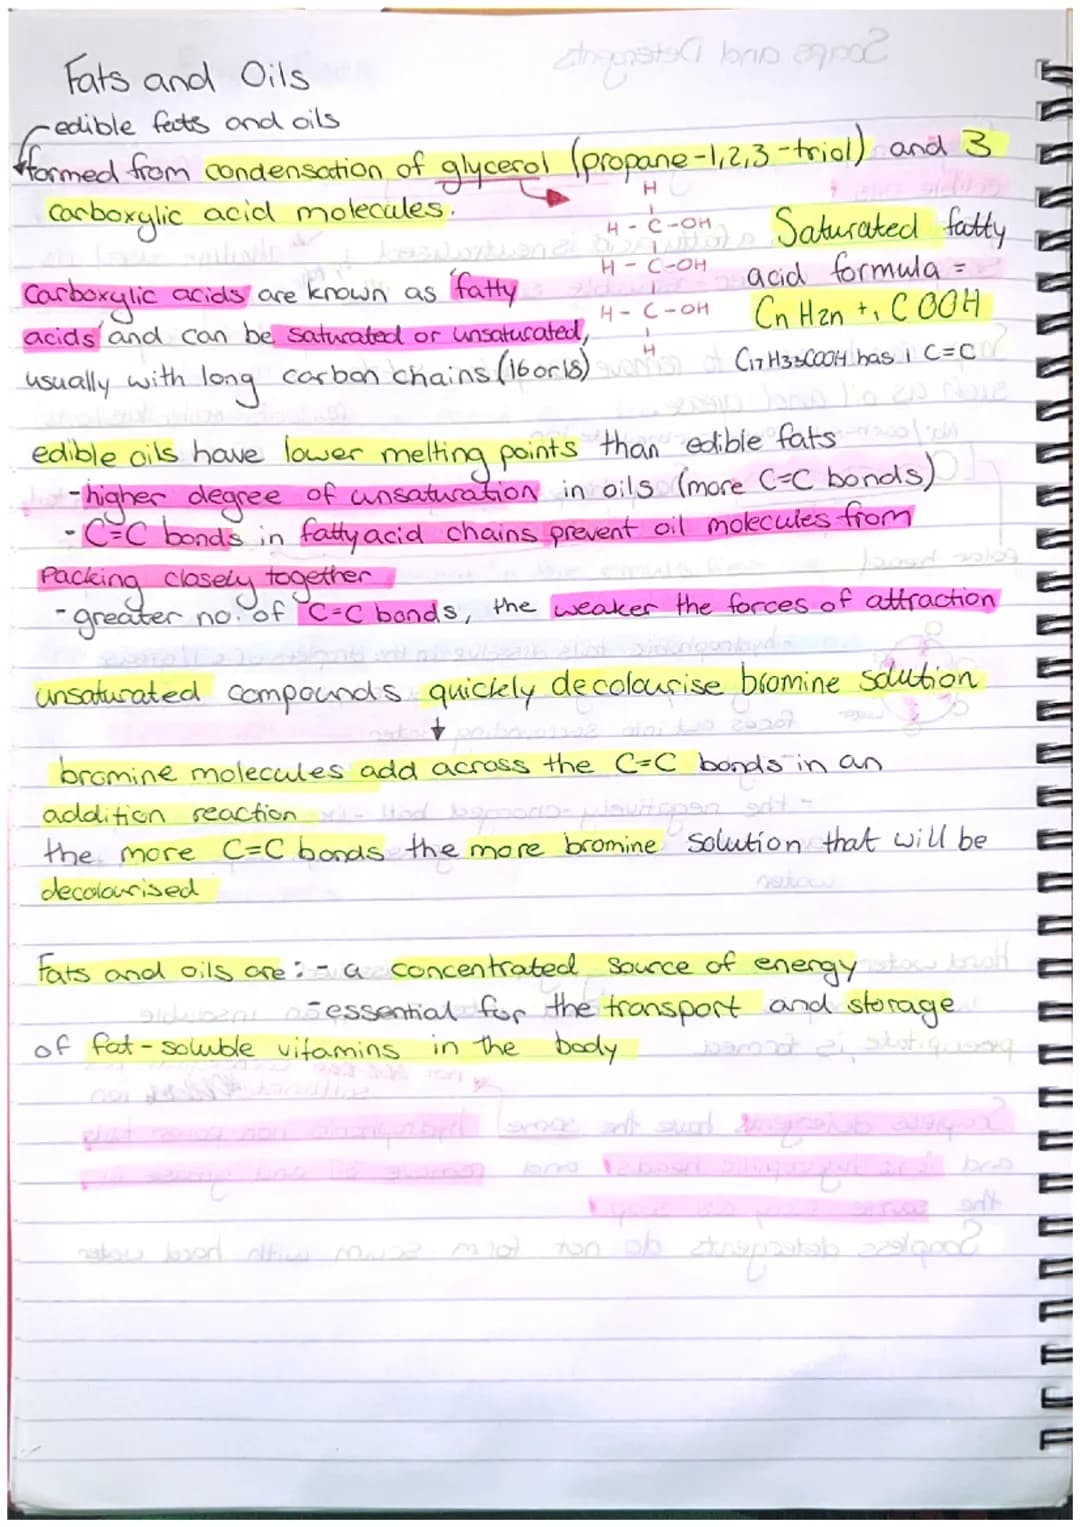 Fats and Oils
edible fats and oils
formed from condensation of glycerol (propane-1,2,3-triol) and 3
carboxylic acid molecules.
H
H - C - OH
H - C - OH
H - C - OH
H
Saturated fatty
acid formula =
CnH2n+1COOH
C17H33COOH has 1 C=C
Carboxylic acids are known as 'fatty
acids' and can be saturated or unsaturated,
usually with long carbon chains (16 or 18)
edible oils have lower melting points than edible fats
- higher degree of unsaturation in oils (more C=C bonds)
- C=C bonds in fatty acid chains prevent oil molecules from
Packing closely together
- greater no. of C=C bonds, the weaker the forces of attraction
unsaturated compounds quickly decolourise bromine solution
bromine molecules add across the C=C bonds in an
addition reaction
the more C=C bonds the more bromine solution that will be
decolourised
Fats and oils are: - a concentrated source of energy
- essential for the transport and storage
of fat-soluble vitamins in the body